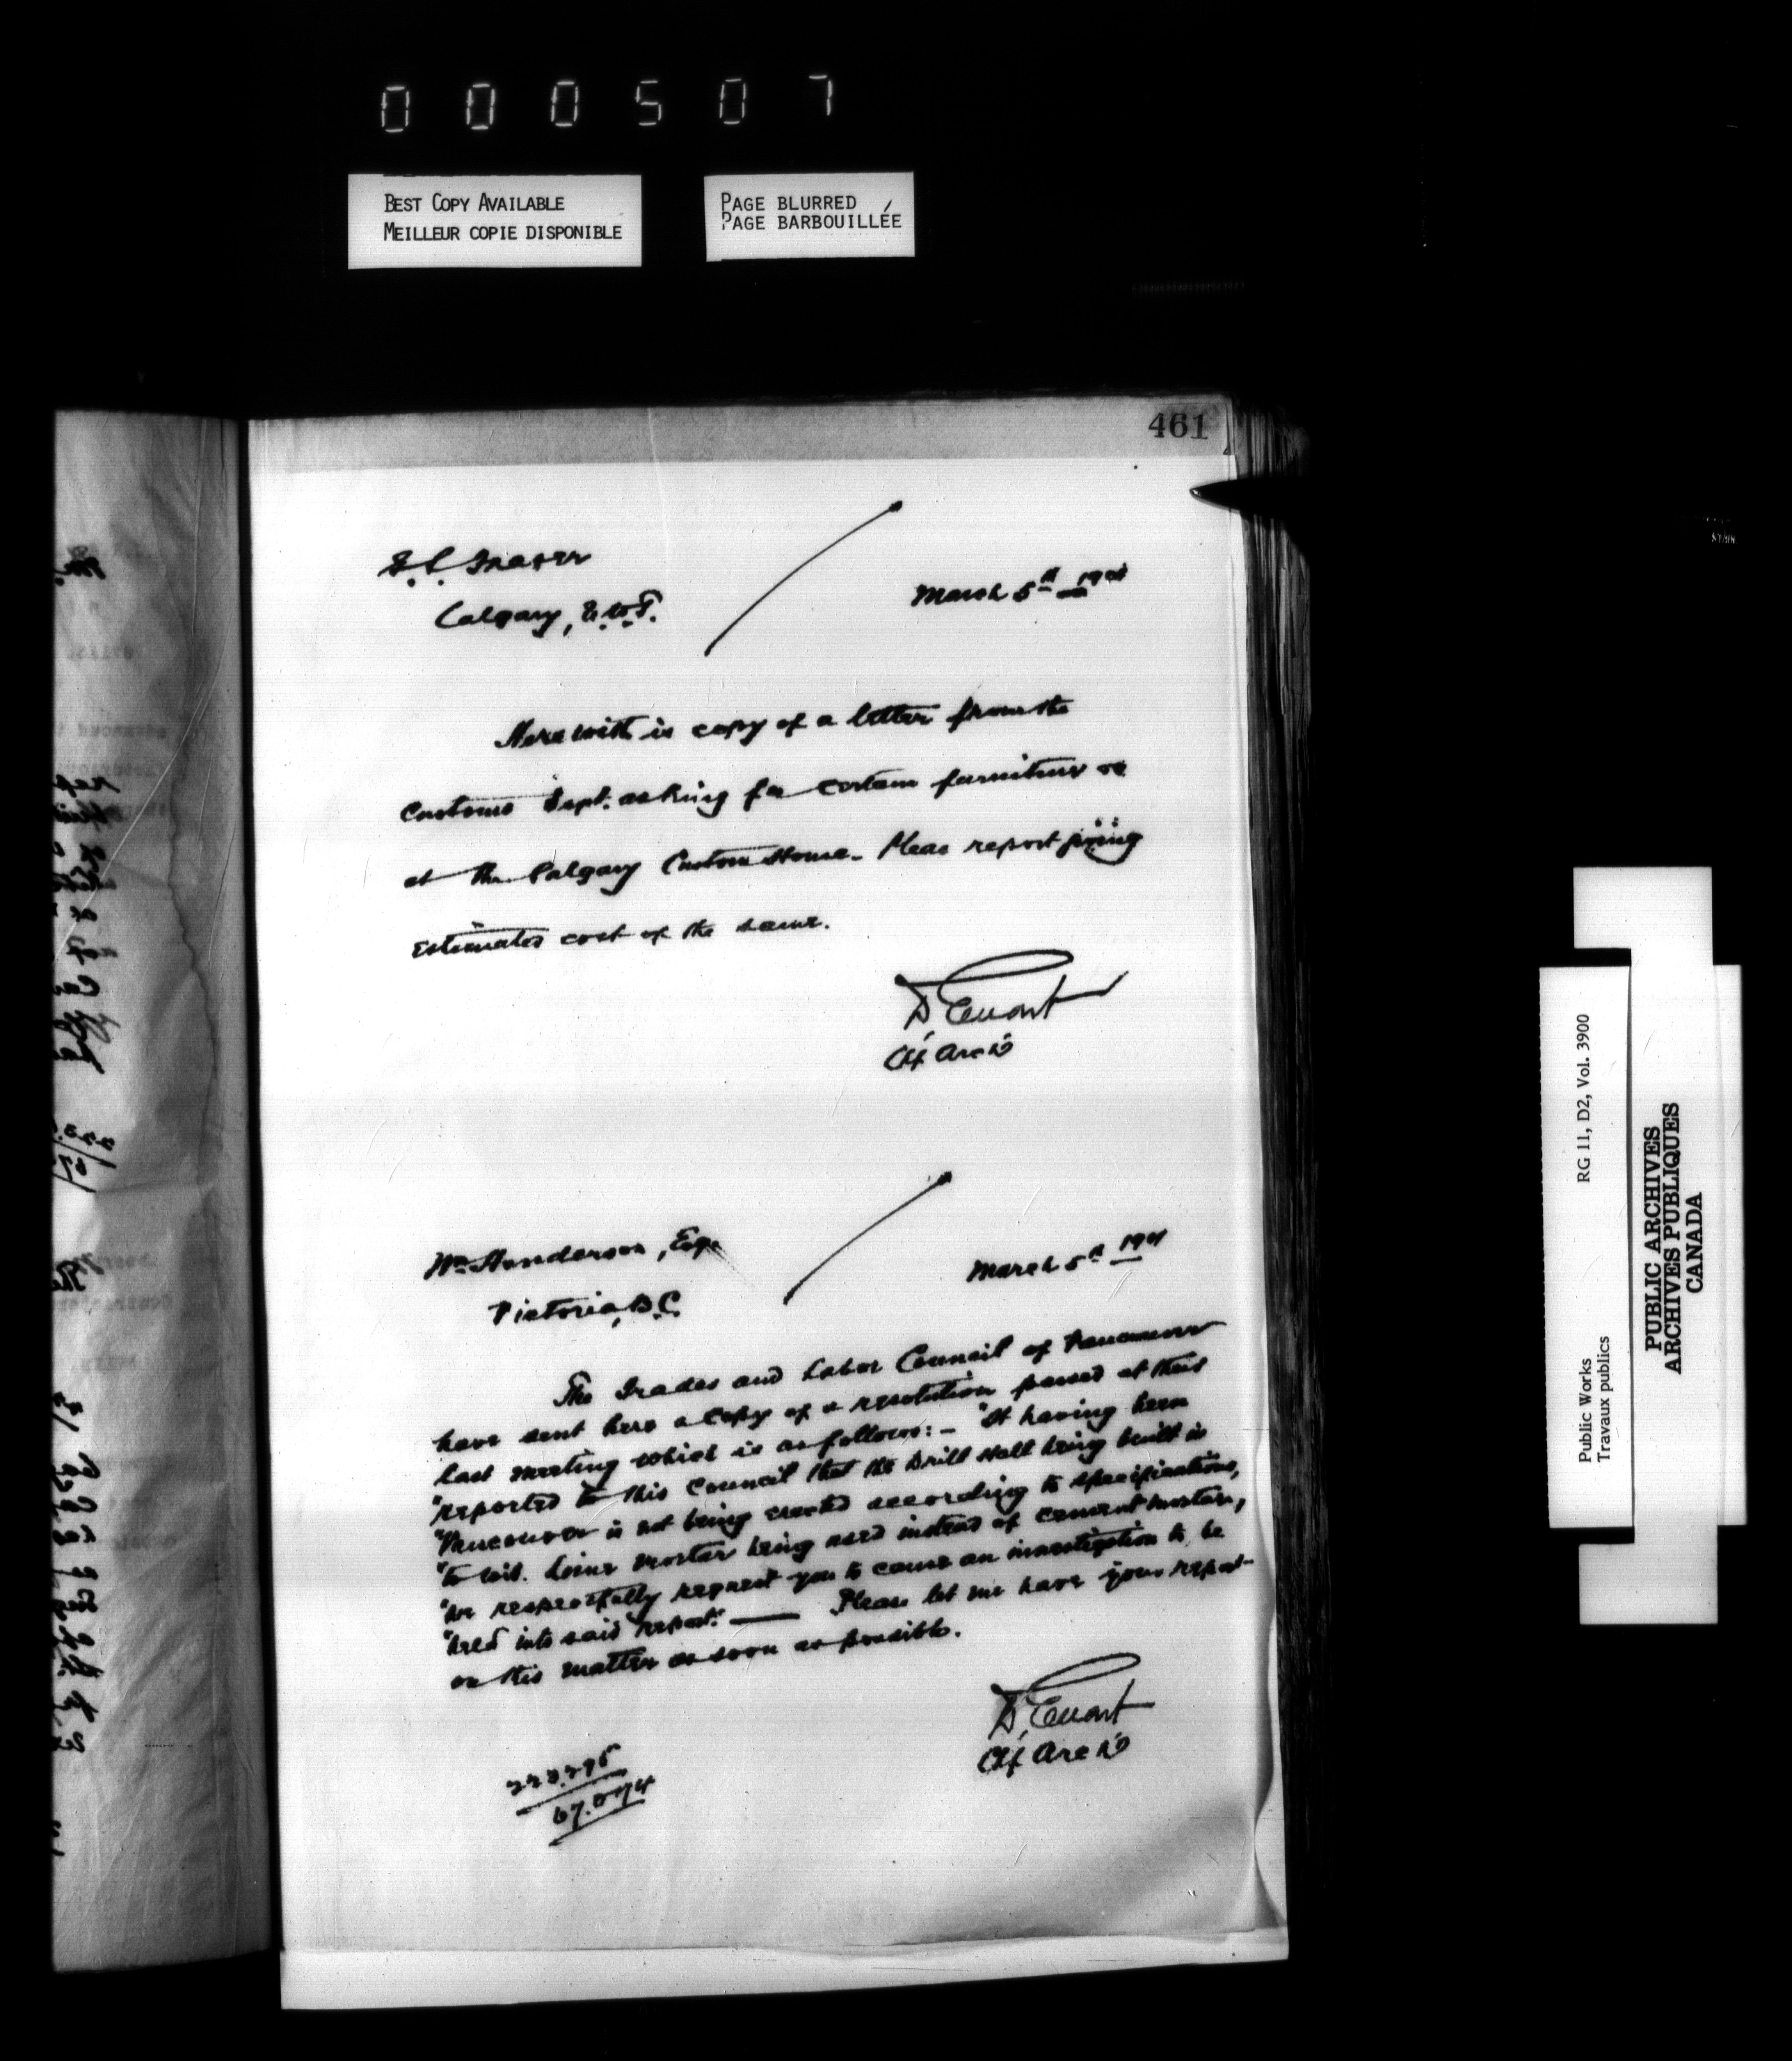 000507
BEST COPY AVAILABLE
MEILLEUR COPIE DISPONIBLE
PAGE BLURRED
PAGE BARBOUILLÉE
461
Fraser
Calgary, N.W.T.
March 5th 1901
Herewith is copy of a letter from the
Customs Dept. asking for certain furniture &c
at the Calgary Custom House. Please report giving
estimated cost of the same.
D. Ewart
Chf Arch
Wm Henderson, Esqr
Victoria, B.C.
March 5th 1901
The Trades and Labor Council of Vancouver
have sent here a copy of a resolution passed at their
last meeting which is as follows:— "It having been
"reported to this Council that the Drill Hall being built in
"Vancouver is not being erected according to specifications,
"to wit. Lime mortar being used instead of cement mortar,
"we respectfully request you to cause an investigation to be
"held into said report." — Please let me have your report
on this matter as soon as possible.
D. Ewart
Chf Arch
223.295
Public Works
Travaux publics
RG 11, D2, Vol. 3900
PUBLIC ARCHIVES
ARCHIVES PUBLIQUES
CANADA